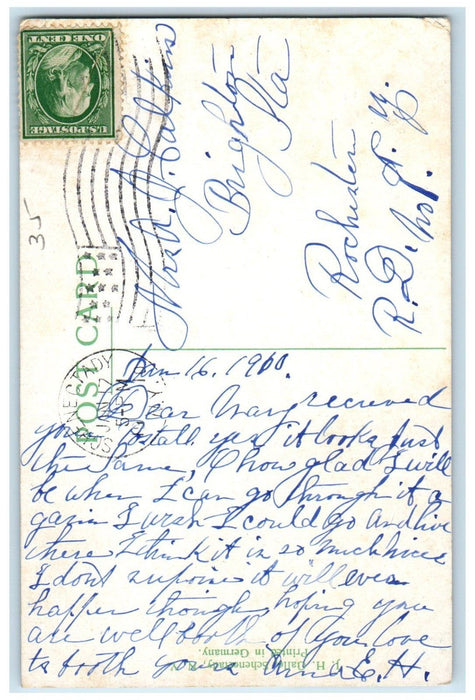 U.S. POSTAGE
ONE CENT
35
POST CARD
SCHENECTADY
N.Y.
JAN
Mrs A. J.
Brighton
Sta
Rochester
N. Y.
R. D. No 1.
Jan 16, 1910.
Dear Mary recieved
your Postall yes it looks just
the same, O how glad I will
be when I can go through it a
gain I wish I could go and live
there I think it is so much nicer
I dont supose it will ever
happen though hoping you
are well both of you love
to both yours Anna E. H.
Schenectady, N.Y.
Printed in Germany.